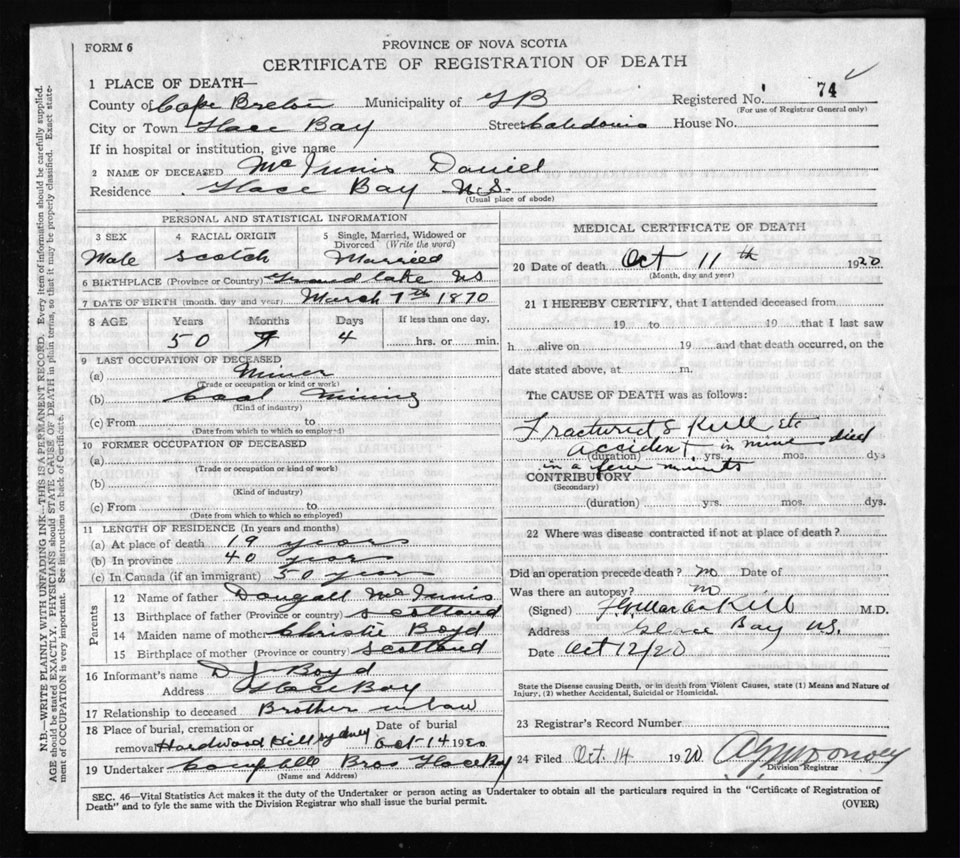 FORM 6
PROVINCE OF NOVA SCOTIA
CERTIFICATE OF REGISTRATION OF DEATH
1 PLACE OF DEATH—
County of Cape Breton Municipality of GB Registered No. 74
(For use of Registrar General only)
City or Town Glace Bay Street Caledonia House No.
If in hospital or institution, give name
2 NAME OF DECEASED McInnis Daniel
Residence Glace Bay N.S.
(Usual place of abode)
PERSONAL AND STATISTICAL INFORMATION
3 SEX 4 RACIAL ORIGIN 5 Single, Married, Widowed or Divorced (Write the word)
Male Scotch Married
6 BIRTHPLACE (Province or Country) Grand Lake NS
7 DATE OF BIRTH (month, day and year) March 7th 1870
8 AGE Years Months Days If less than one day,
50 7 4 hrs. or min.
9 LAST OCCUPATION OF DECEASED
(a) Miner
(Trade or occupation or kind or work)
(b) Coal Mining
(Kind of industry)
(c) From to
(Date from which to which so employed)
10 FORMER OCCUPATION OF DECEASED
(a)
(Trade or occupation or kind of work)
(b)
(Kind of industry)
(c) From to
(Date from which to which so employed)
11 LENGTH OF RESIDENCE (In years and months)
(a) At place of death 19 years
(b) In province 40 years
(c) In Canada (if an immigrant) 50 years
Parents
12 Name of father Dougall McInnis
13 Birthplace of father (Province or country) Scotland
14 Maiden name of mother Christie Boyd
15 Birthplace of mother (Province or country) Scotland
16 Informant's name D J Boyd
Address Glace Bay
17 Relationship to deceased Brother in law
18 Place of burial, cremation or Date of burial
removal Hardwood Hill Sydney Oct 14 1920
19 Undertaker Campbell Bros Glace Bay
(Name and Address)
MEDICAL CERTIFICATE OF DEATH
20 Date of death Oct 11th 1920
(Month, day and year)
21 I HEREBY CERTIFY, that I attended deceased from
19 to 19 that I last saw
h alive on 19 and that death occurred, on the
date stated above, at m.
The CAUSE OF DEATH was as follows:
Fractured Skull etc
accident in mine died
(duration) yrs. mos. dys
in a few minuts
CONTRIBUTORY
(Secondary)
(duration) yrs. mos. dys.
22 Where was disease contracted if not at place of death?
Did an operation precede death? no Date of
Was there an autopsy? no
(Signed) M.D.
Address Glace Bay N.S.
Date Oct 12/20
State the Disease causing Death, or in death from Violent Causes, state (1) Means and Nature of
Injury, (2) whether Accidental, Suicidal or Homicidal.
23 Registrar's Record Number
24 Filed Oct. 14 1920
Division Registrar
SEC. 46—Vital Statistics Act makes it the duty of the Undertaker or person acting as Undertaker to obtain all the particulars required in the "Certificate of Registration of
Death" and to fyle the same with the Division Registrar who shall issue the burial permit.
(OVER)
N.B.—WRITE PLAINLY WITH UNFADING INK—THIS IS A PERMANENT RECORD. Every item of information should be carefully supplied.
AGE should be stated EXACTLY. PHYSICIANS should STATE CAUSE OF DEATH in plain terms, so that it may be properly classified. Exact state-
ment of OCCUPATION is very important. See instructions on back of Certificate.